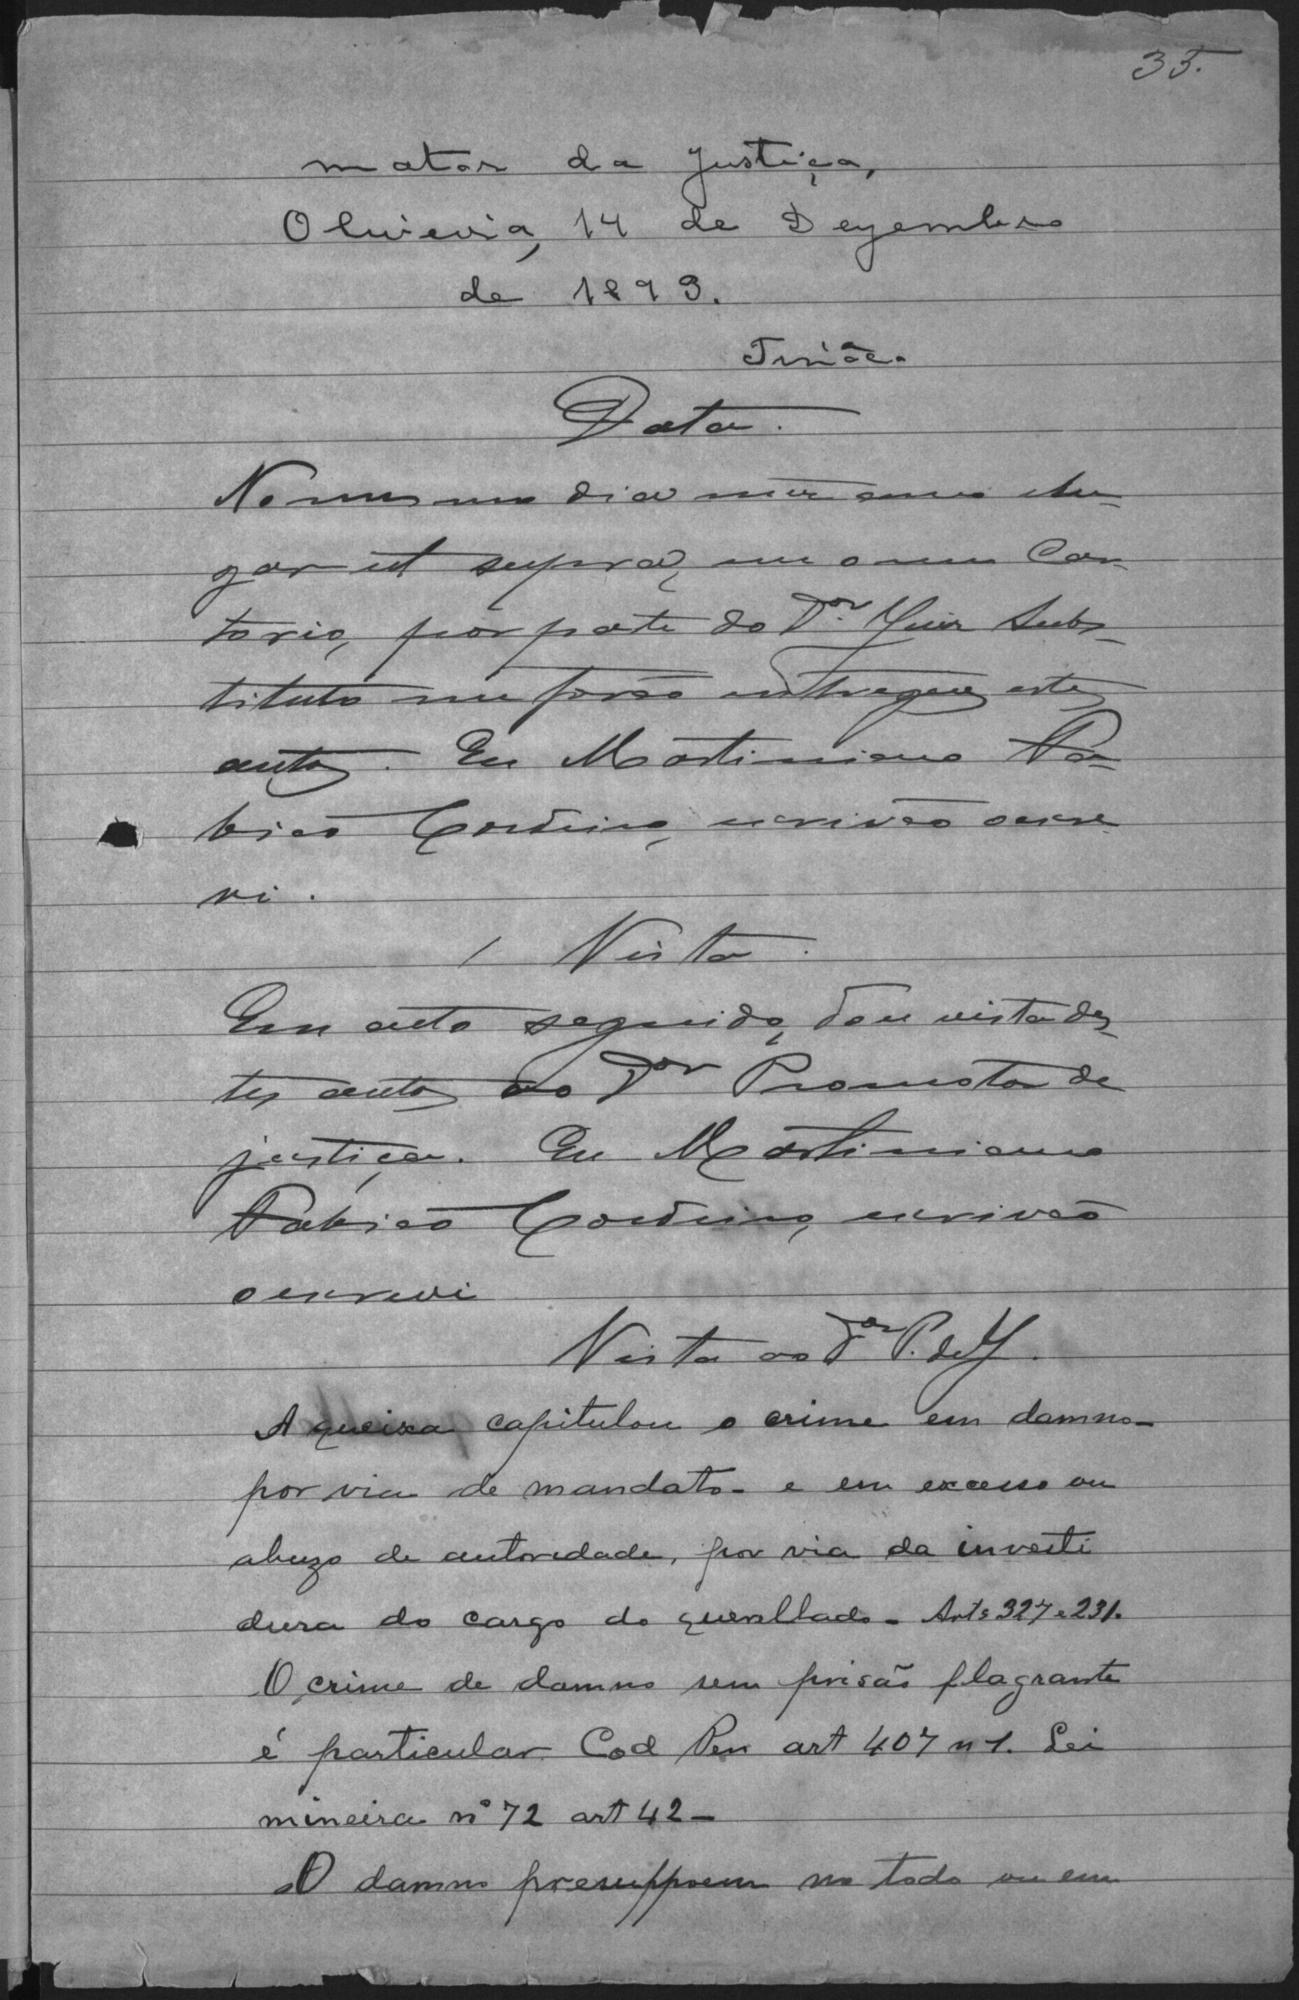 35.
motor da Justiça,
Oliveira, 14 de Dezembro
de 1893.
Data.
No mesmo dia mez anno e lu-
gar ut supra, em o meu Car-
torio, por parte do Dor. Juiz Subs-
tituto me forão entregues estes
autos. Eu Martiniano Fa-
bião Cordeiro, escrivão o escre-
vi.
Vista.
Em acto seguido, dou vista des-
tes autos ao Dor Promotor de
justiça. Eu Martiniano
Fabião Cordeiro, escrivão
o escrevi
Vista ao Dor P. de J.
A queixa capitulou o crime em damno-
por via de mandato- e em excesso ou
abuzo de autoridade, por via da investi
dura do cargo do querellado- Arts 327 e 231.
O crime de damno sem prisão flagrante
é particular. Cod Pen art 407 n 1. Lei
mineira nº 72 art 42-
O damno presuppoem no todo ou em